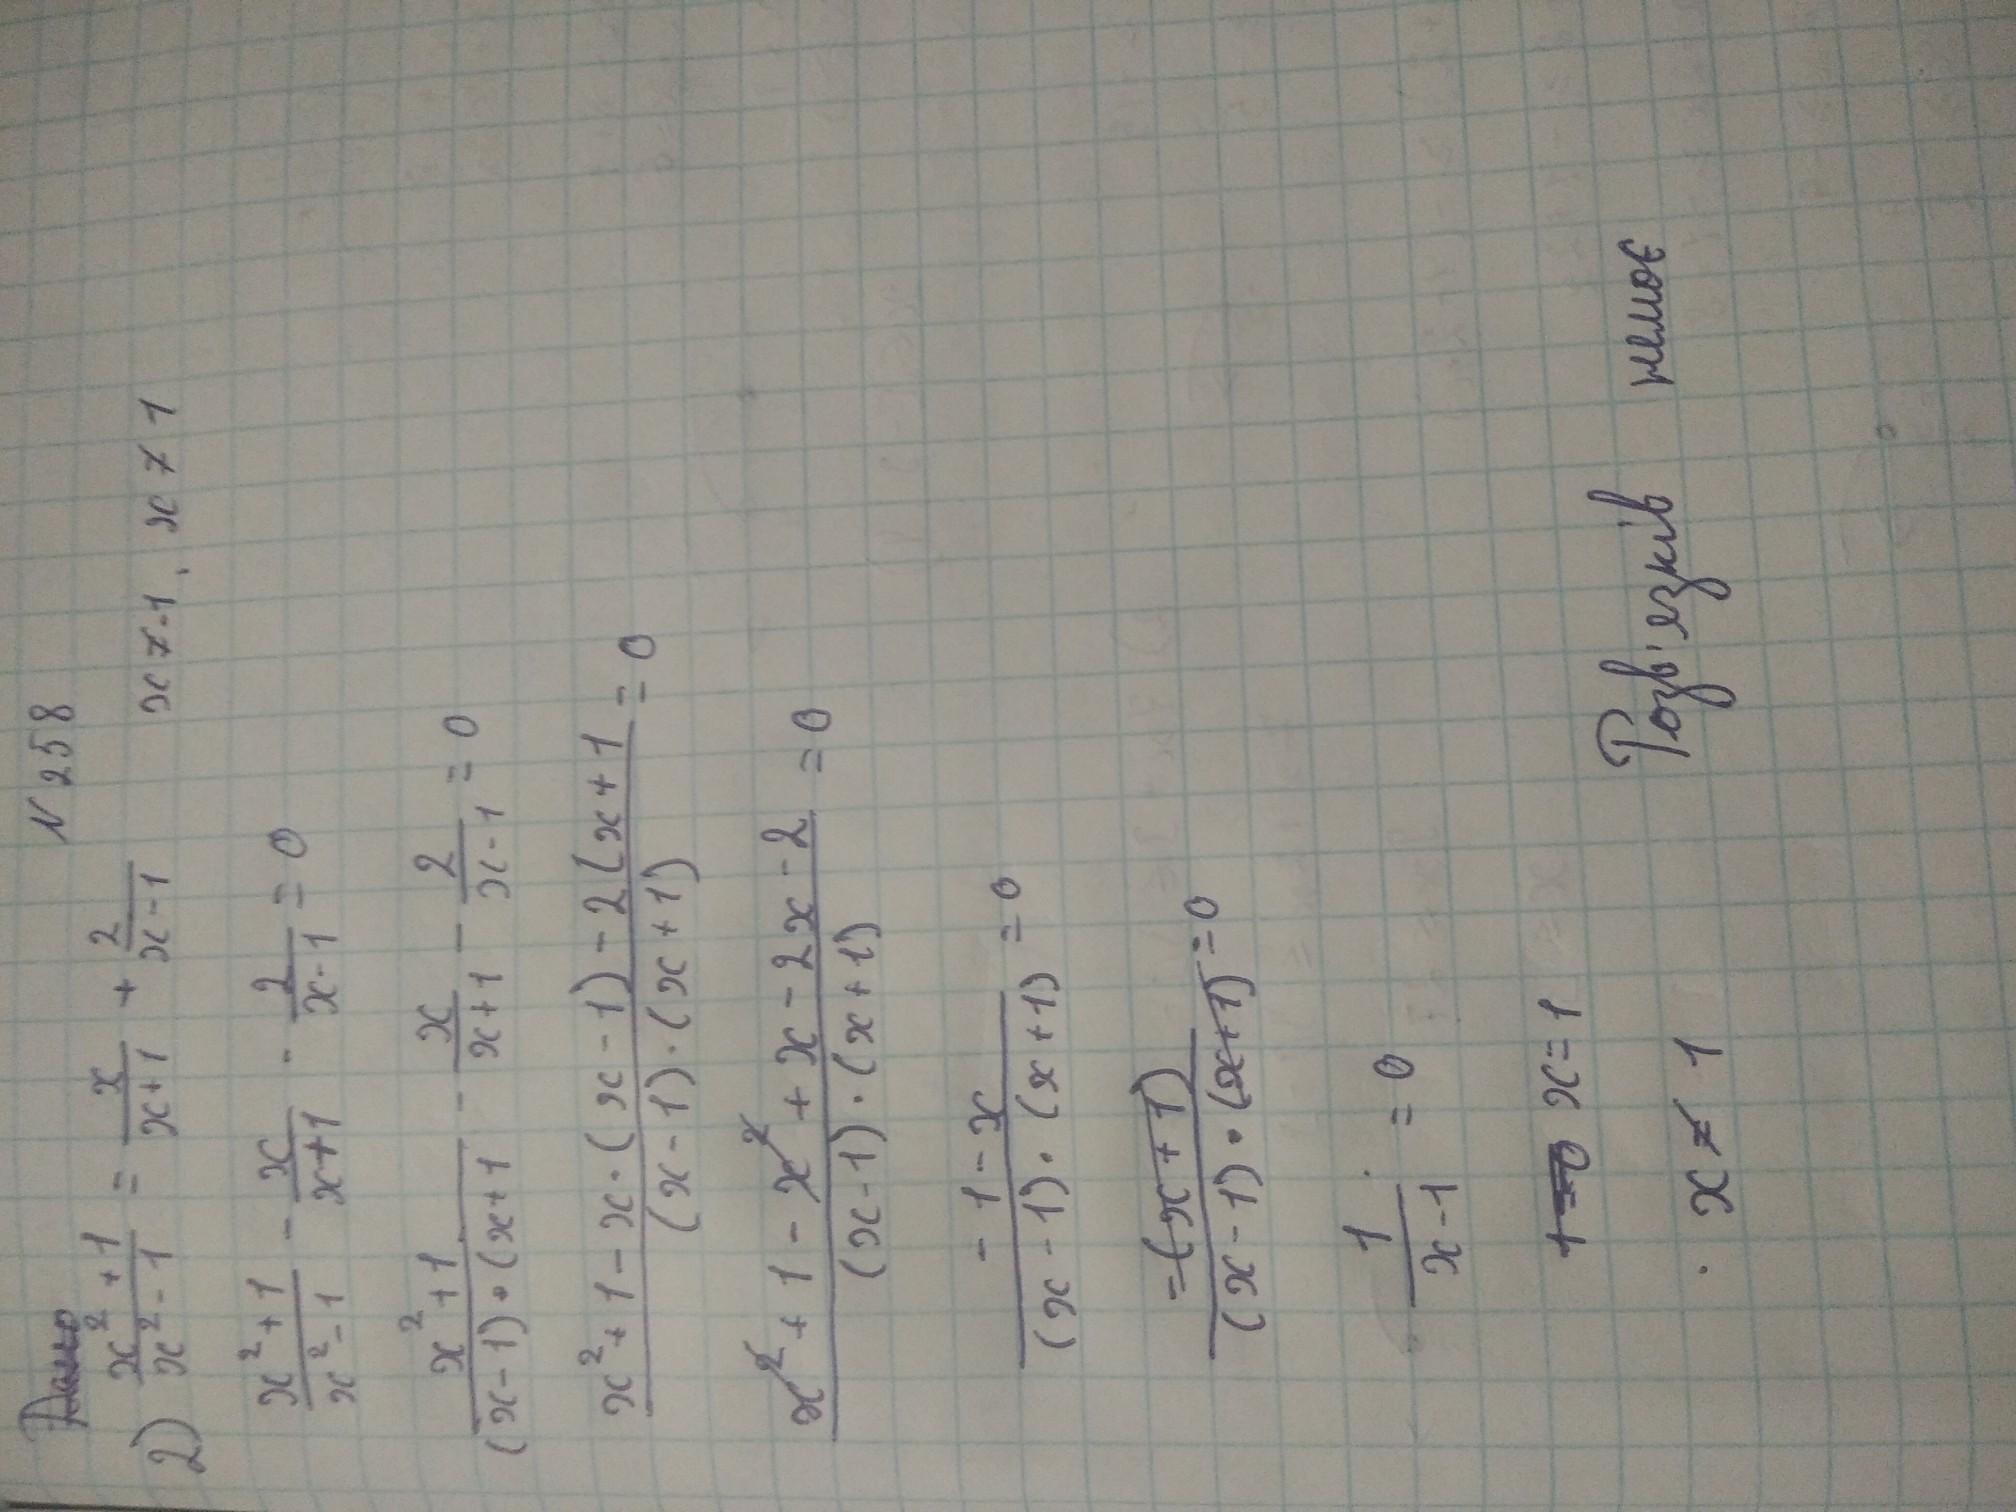 N 258
2) (x² + 1)/(x² - 1) = x/(x+1) + 2/(x-1)   x ≠ -1, x ≠ 1
(x² + 1)/(x² - 1) - x/(x+1) - 2/(x-1) = 0
(x² + 1)/((x-1)·(x+1) - x/(x+1) - 2/(x-1) = 0
(x² + 1 - x·(x-1) - 2(x+1)/((x-1)·(x+1)) = 0
(x² + 1 - x² + x - 2x - 2)/((x-1)·(x+1)) = 0
(-1-x)/((x-1)·(x+1)) = 0
-(x+1)/((x-1)·(x+1)) = 0
1/(x-1) = 0
x = 1
x ≠ 1
Розв'езків немає